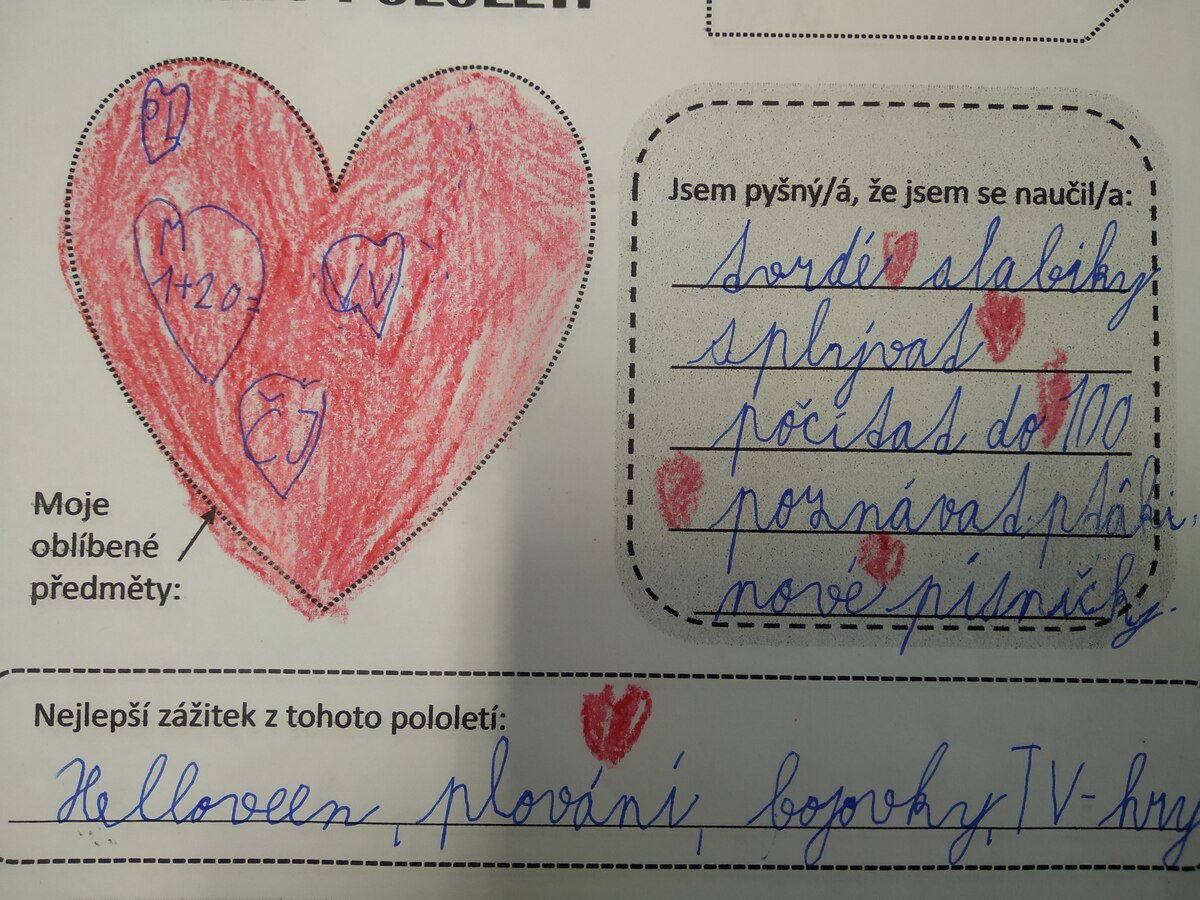 POLOLETÍ
M
1+20=
VV
ČJ
Moje
oblíbené
předměty:
Jsem pyšný/á, že jsem se naučil/a:
tvrdé slabiky
splývat
počítat do 100
poznávat ptáki.
nové písničky.
Nejlepší zážitek z tohoto pololetí:
Helloveen, plování, bojovky, TV-hry